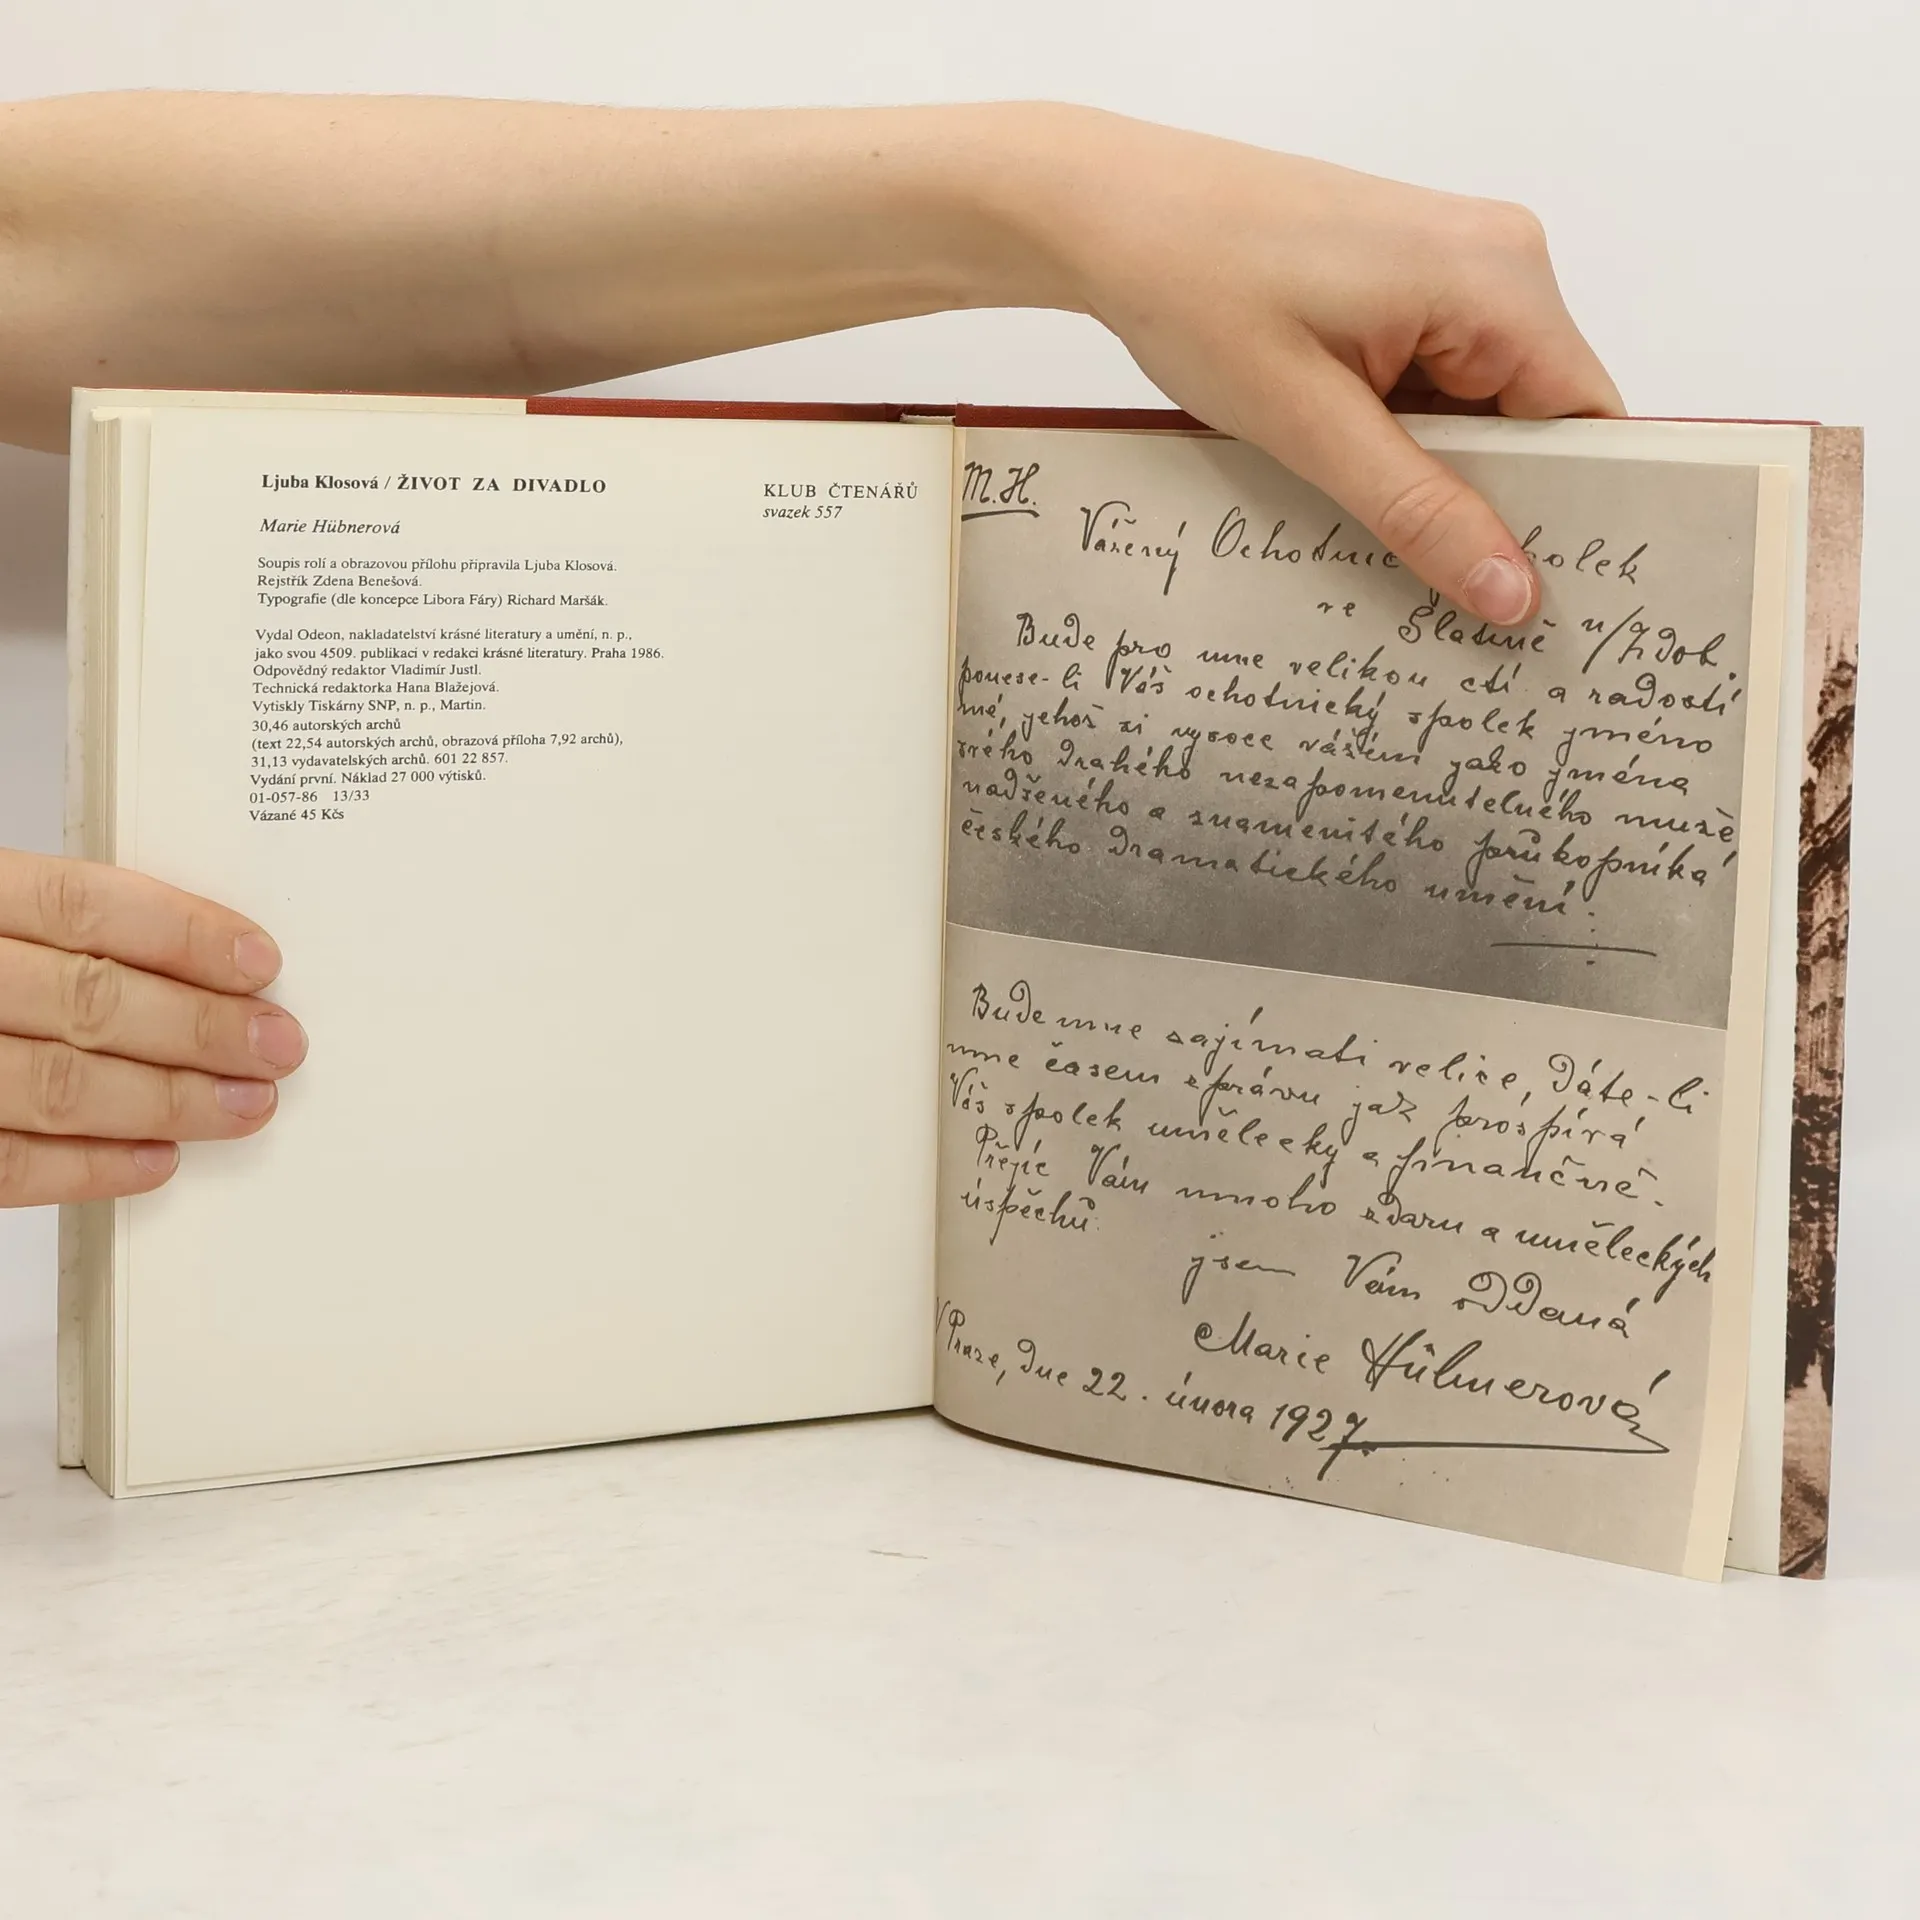 Ljuba Klosová / ŽIVOT ZA DIVADLO
Marie Hübnerová
Soupis rolí a obrazovou přílohu připravila Ljuba Klosová.
Rejstřík Zdena Benešová.
Typografie (dle koncepce Libora Fáry) Richard Maršák.
Vydal Odeon, nakladatelství krásné literatury a umění, n. p.,
jako svou 4509. publikaci v redakci krásné literatury. Praha 1986.
Odpovědný redaktor Vladimír Justl.
Technická redaktorka Hana Blažejová.
Vytiskly Tiskárny SNP, n. p., Martin.
30,46 autorských archů
(text 22,54 autorských archů, obrazová příloha 7,92 archů),
31,13 vydavatelských archů. 601 22 857.
Vydání první. Náklad 27 000 výtisků.
01-057-86 13/33
Vázané 45 Kčs
KLUB ČTENÁŘŮ
svazek 557
M. H.
Vážený
ve Slatině n/Zdob.
Bude pro mne velikou ctí a radostí
ponese-li Váš ochotnický spolek jméno
mé, jehož si vysoce vážím jako jména
svého drahého nezapomenutelného muže
nadšeného a znamenitého průkopníka
českého dramatického umění.
Bude mne zajímati velice, dáte-li
mne časem zprávu jak prospívá
Váš spolek umělecky a finančně.
Přejíc Vám mnoho zdaru a uměleckých
úspěchů.
jsem Vám oddaná
Marie Hübnerová
V Praze, dne 22. února 1927.